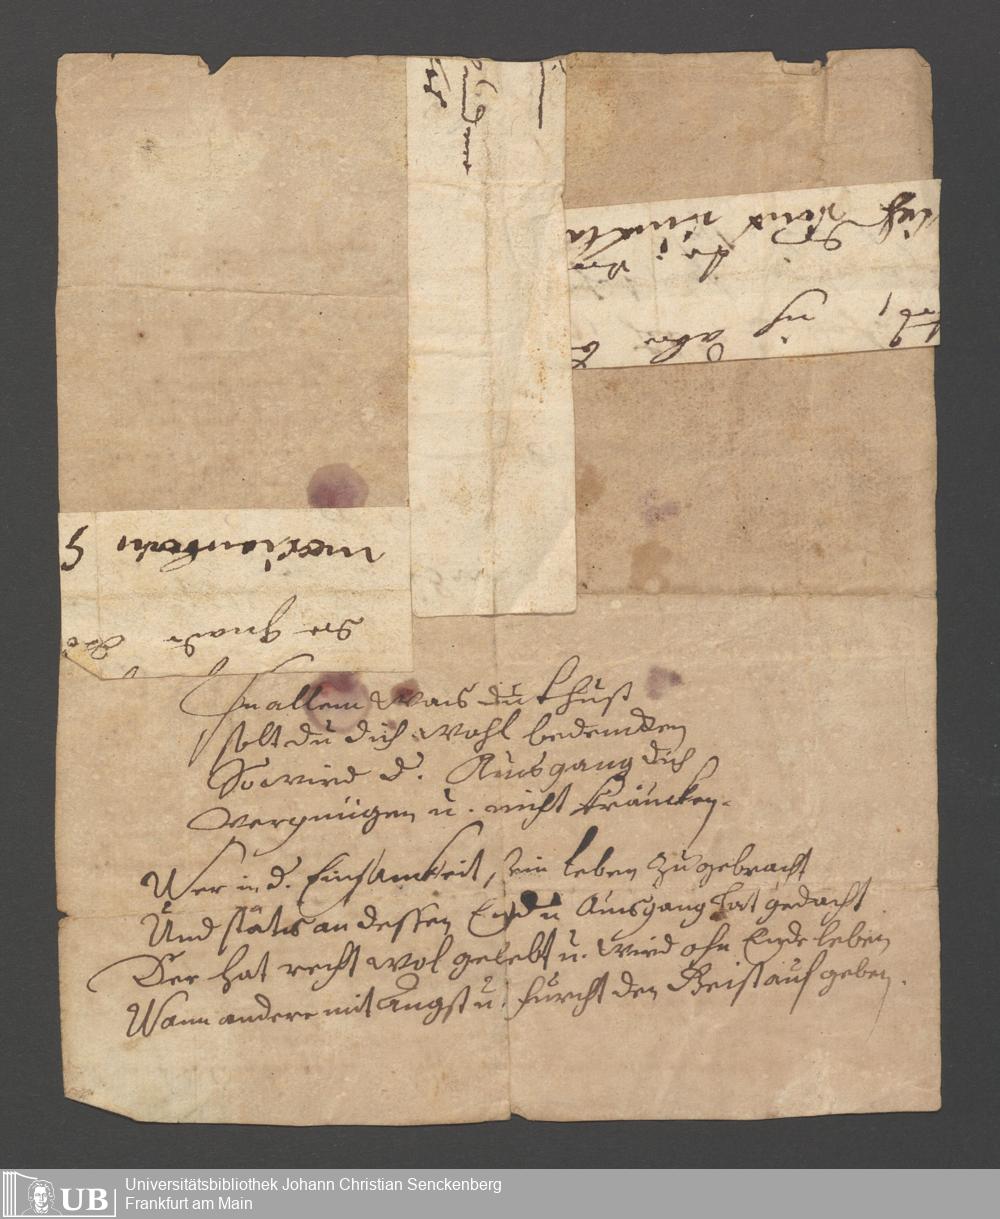 In allem was du thust
solt du dich wohl bedencken
So wird d. Ausgang dich
vergnügen u. nicht kräncken.
Wer in d. Einsamkeit, sein leben zugebracht
Und stäts an dessen End u Ausgang hat gedacht
Der hat recht wol gelebt u. wird ohn Ende leben
Wann andere mit Angst u. furcht den Geist aufgeben.
der Gnade
ich aber
UB
Universitätsbibliothek Johann Christian Senckenberg
Frankfurt am Main